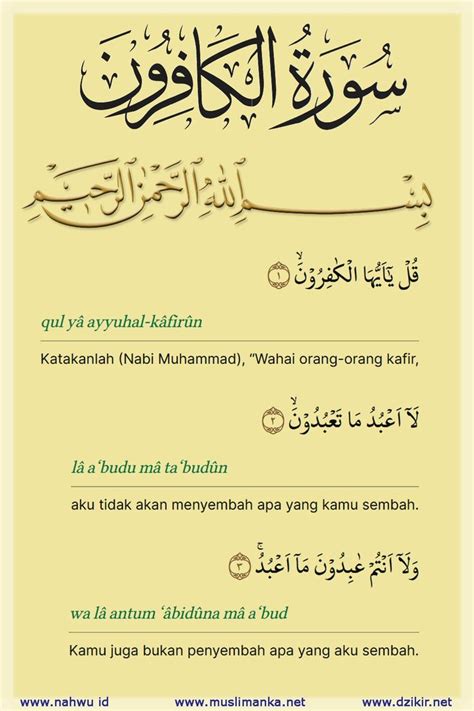 سُورَةُ الكَافِرُونَ
بِسْمِ اللهِ الرَّحْمٰنِ الرَّحِيْمِ
قُلْ يٰٓاَيُّهَا الْكٰفِرُوْنَۙ ١
qul yâ ayyuhal-kâfirûn
Katakanlah (Nabi Muhammad), “Wahai orang-orang kafir,
لَآ اَعْبُدُ مَا تَعْبُدُوْنَۙ ٢
lâ a‘budu mâ ta‘budûn
aku tidak akan menyembah apa yang kamu sembah.
وَلَآ اَنْتُمْ عٰبِدُوْنَ مَآ اَعْبُدُۚ ٣
wa lâ antum ‘âbidûna mâ a‘bud
Kamu juga bukan penyembah apa yang aku sembah.
www.nahwu id www.muslimanka.net www.dzikir.net